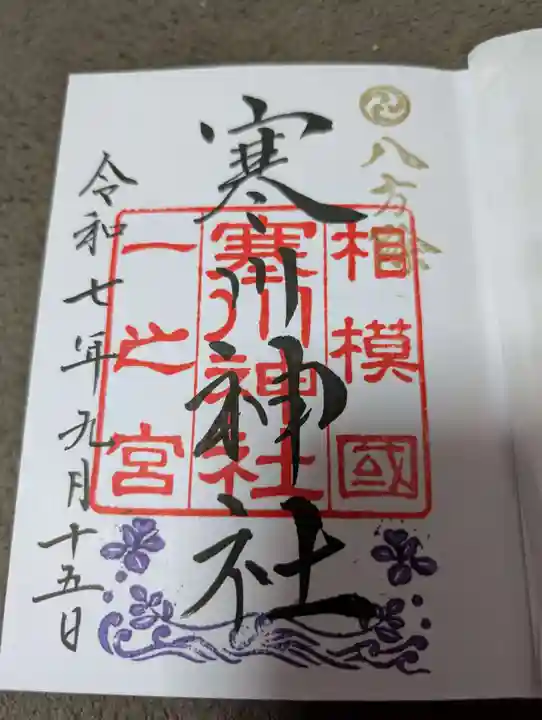 八方除
相模國
寒川神社
一之宮
寒川神社
令和七年九月十五日